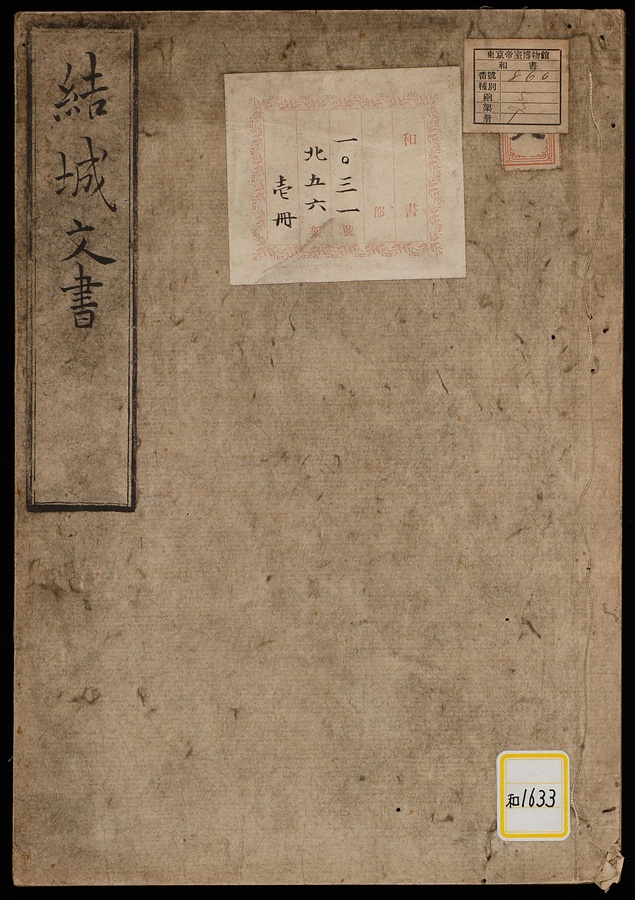 結城文書
和書
部
一〇三一
號
北五六
架
壱冊
東京帝室博物館
和書
番號 860
種別
函 5
架
册
和1633